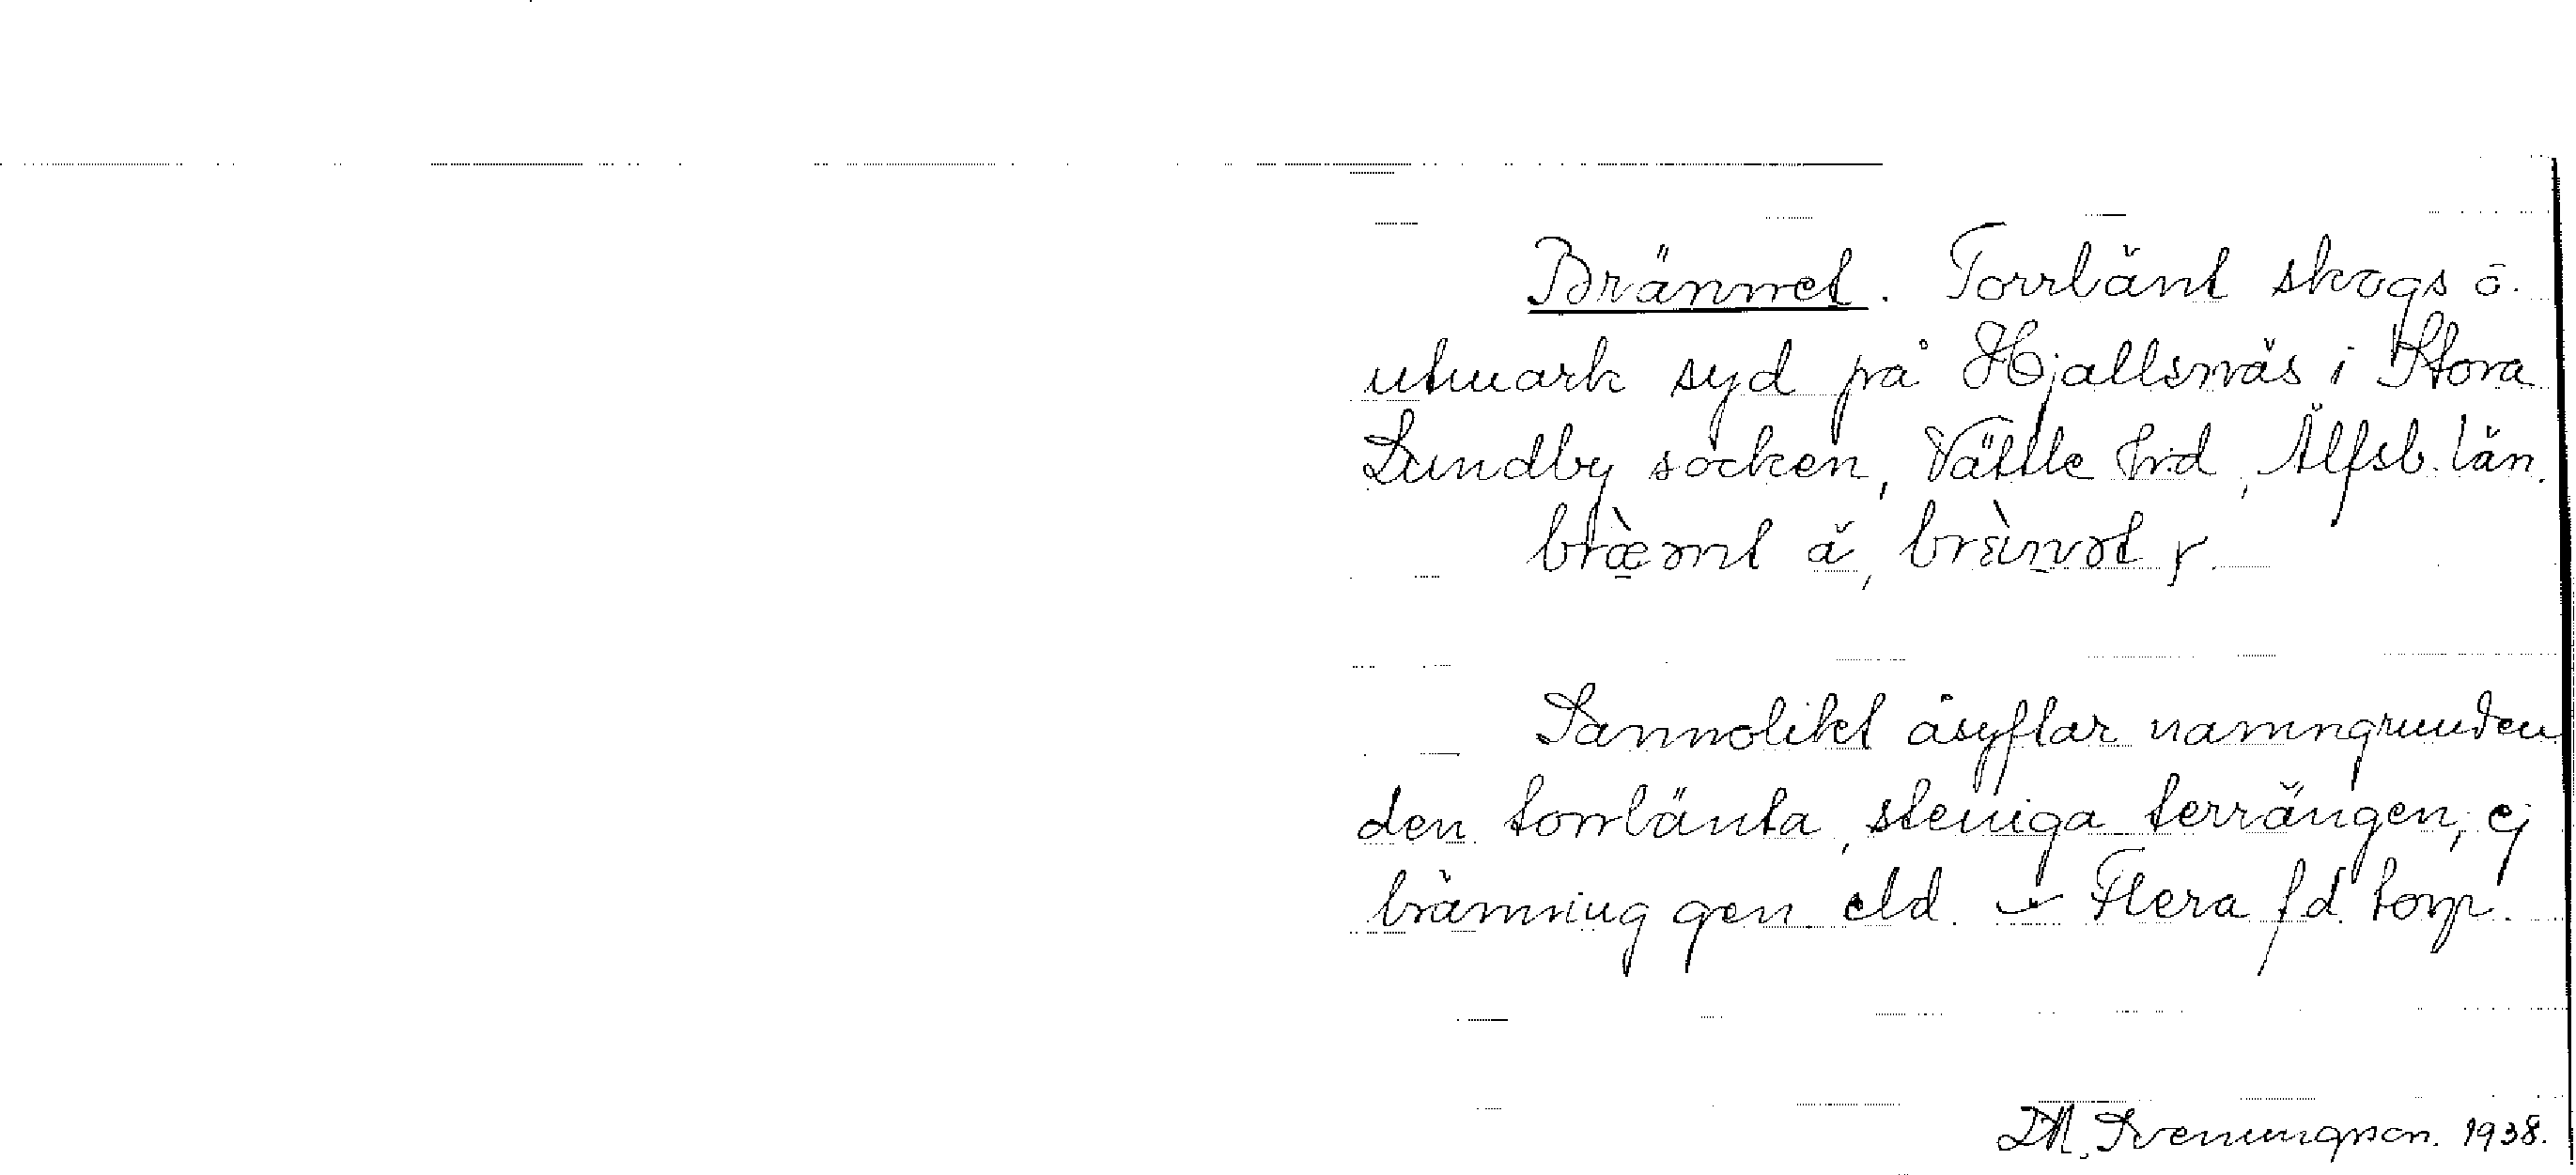 Brännet. Torrlänt skogs o.
utmark syd på Hjällsnäs i Stora
Lundby socken, Vättle hd, Älfsb. län.
Sannolikt åsyftar namngrunden
den torrlänta, steniga terrängen, ej
bränning gen. eld. – Flera f.d. torp.
Svenungson. 1938.